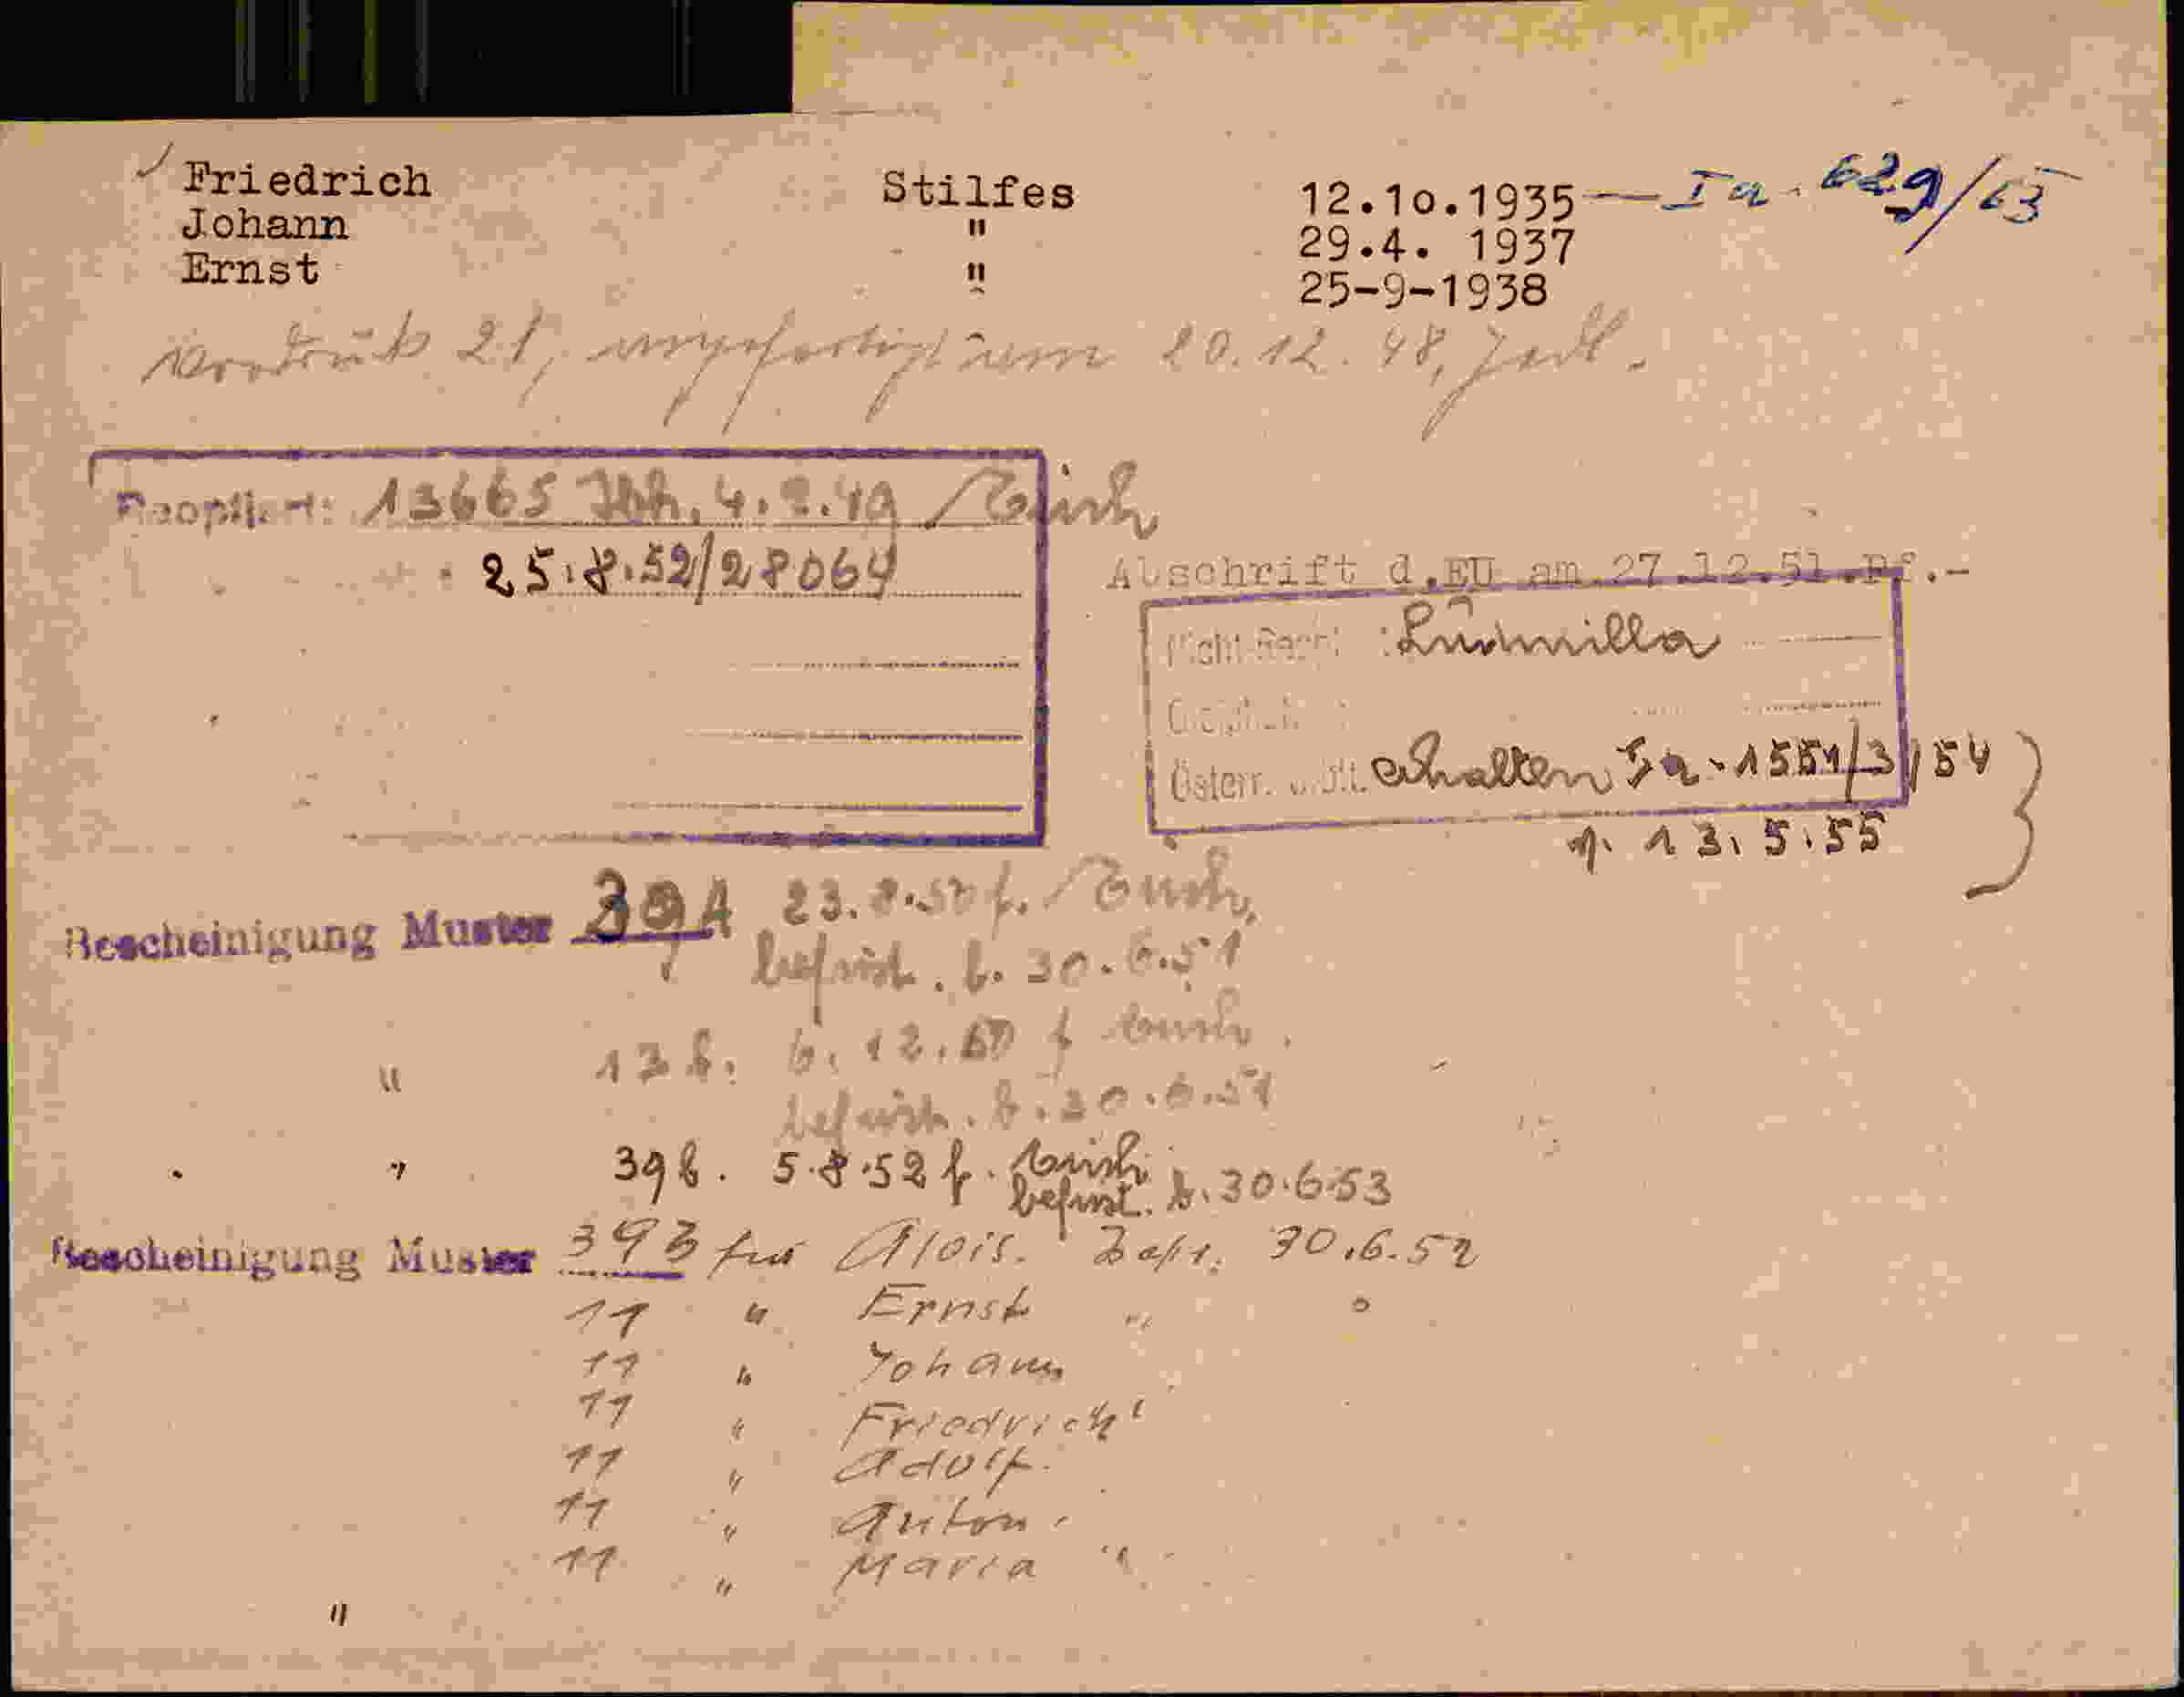 Friedrich Stilfes 12.10.1935 — Ia. 629/63
Johann " 29.4. 1937
Ernst " 25-9-1938
Vordruck 21, am 20.12.48,
13665 4. .49
25.8.52/28064
Abschrift d.EU am 27.12.51.Pf.-
Ludmilla
Österr. erhalten Ia-1551/3/54
13.5.55
Bescheinigung Muster 39A 23.8.50 f.
befrist. b. 30.6.51
" 13b. 6.12.50 f
befrist. b. 30.6.51
" " 39b. 5.8.52 f.
befrist. b. 30.6.53
Bescheinigung Muster 39B für Alois. 30.6.52
11 " Ernst "
11 " Johann
11 " Friedrich "
11 " Adolf.
11 " Anton.
11 " Maria "
"